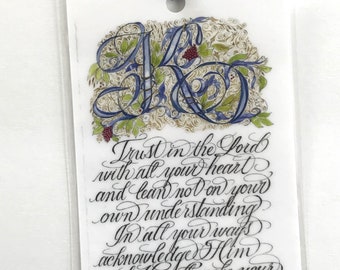 Trust in the Lord
with all your heart
and lean not on your
own understanding
In all your ways
acknowledge Him